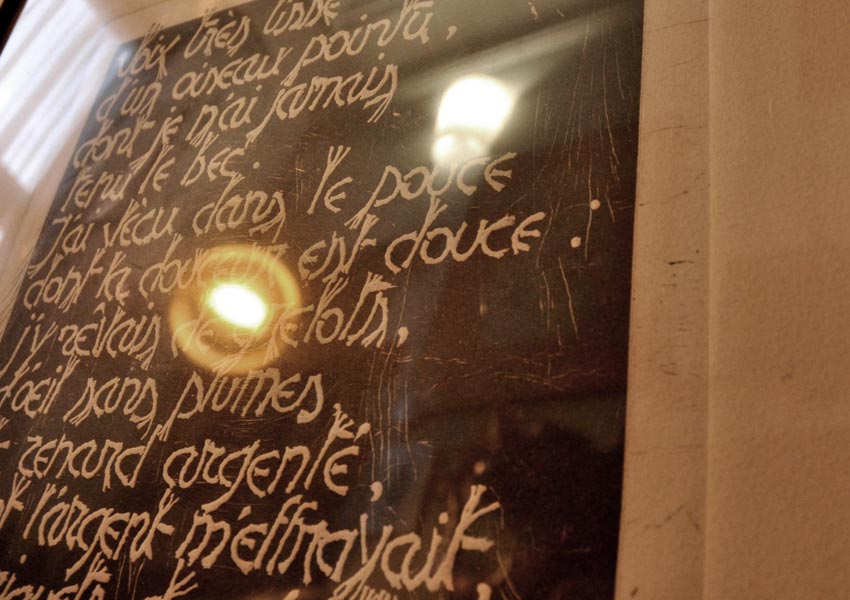 voix très lisse
d'un oiseau pointu,
dont je n'ai jamais
tenu le bec.
J'ai vécu dans le pouce
dont la douceur est douce :
j'y rêvais de grelots,
d'œil sans plumes,
renard argenté,
l'argent m'effrayait